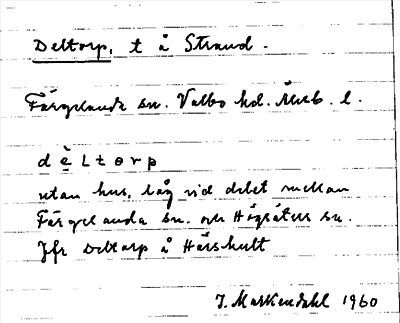 Deltorp, t å Strand.
Färgelanda sn. Valbo hd. Älvsb. l.
d è L t o r p
utan hus, låg vid delet mellan
Färgelanda sn. och Högsäters sn.
Jfr Deltorp å Härshult
J. Markendahl 1960